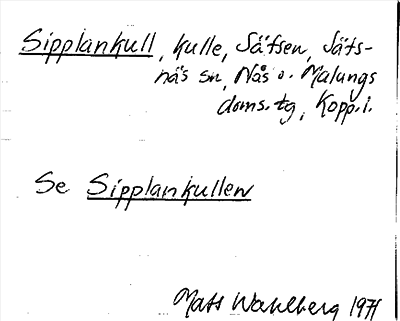 Sipplankull, kulle, Säfsen, Säfs-
näs sn, Nås o. Malungs
doms.tg, Kopp.l.
Se Sipplankullen
Mats Wahlberg 1971